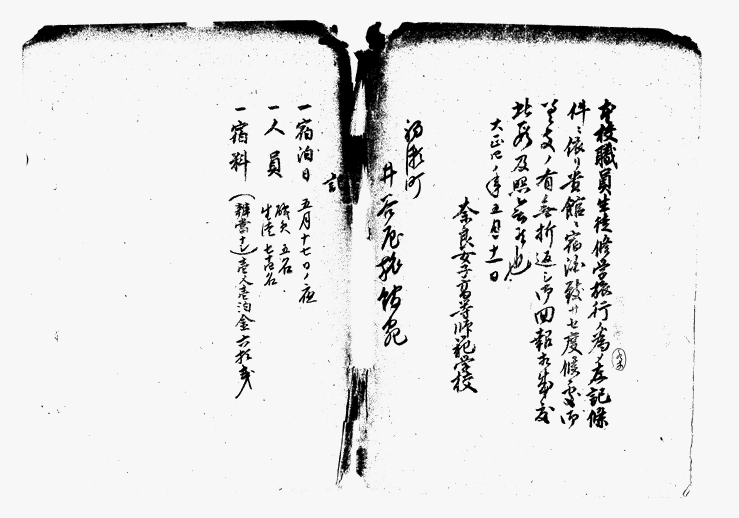 本校職員生徒修学旅行ノ為メ左記條
件ニ依リ貴館ニ宿泊致サセ度候處御
差支ノ有無折返シ御回報相成度
此段及照会候也
大正四年五月十一日
奈良女子高等師範学校
町
井谷屋旅館宛
記
一宿泊日 五月十七日ノ夜
一人員 職員 五名
生徒 七十名
一宿料 (弁当ナシ)壱人壱泊金六拾銭